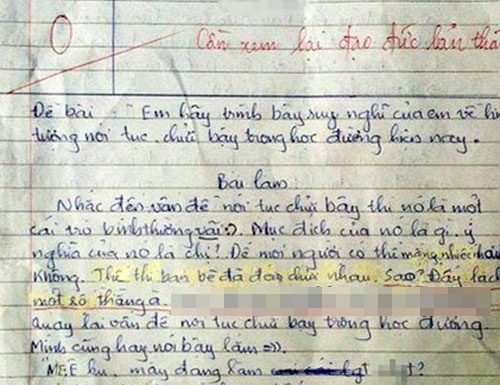 0
Cần xem lại đạo đức bản thâ
Đề bài: "Em hãy trình bày suy nghĩ của em về hi
tượng nói tục, chửi bậy trong học đường hiện nay.
Bài làm
Nhắc đến vấn đề nói tục chửi bậy thì nó là một
cái trò bình thường vãi :). Mục đích của nó là gì, ý
nghĩa của nó là chi! Để mọi người có thể mắng nhiếc hay
không. Thế thì bạn bè đã đéo chửi nhau. Sao? Đấy là c
một số thằng a.
quay lại vấn đề nói tục chửi bậy trong học đường
Mình cũng hay nói bậy lắm =)).
"MẸ E ku, mày đang làm t?